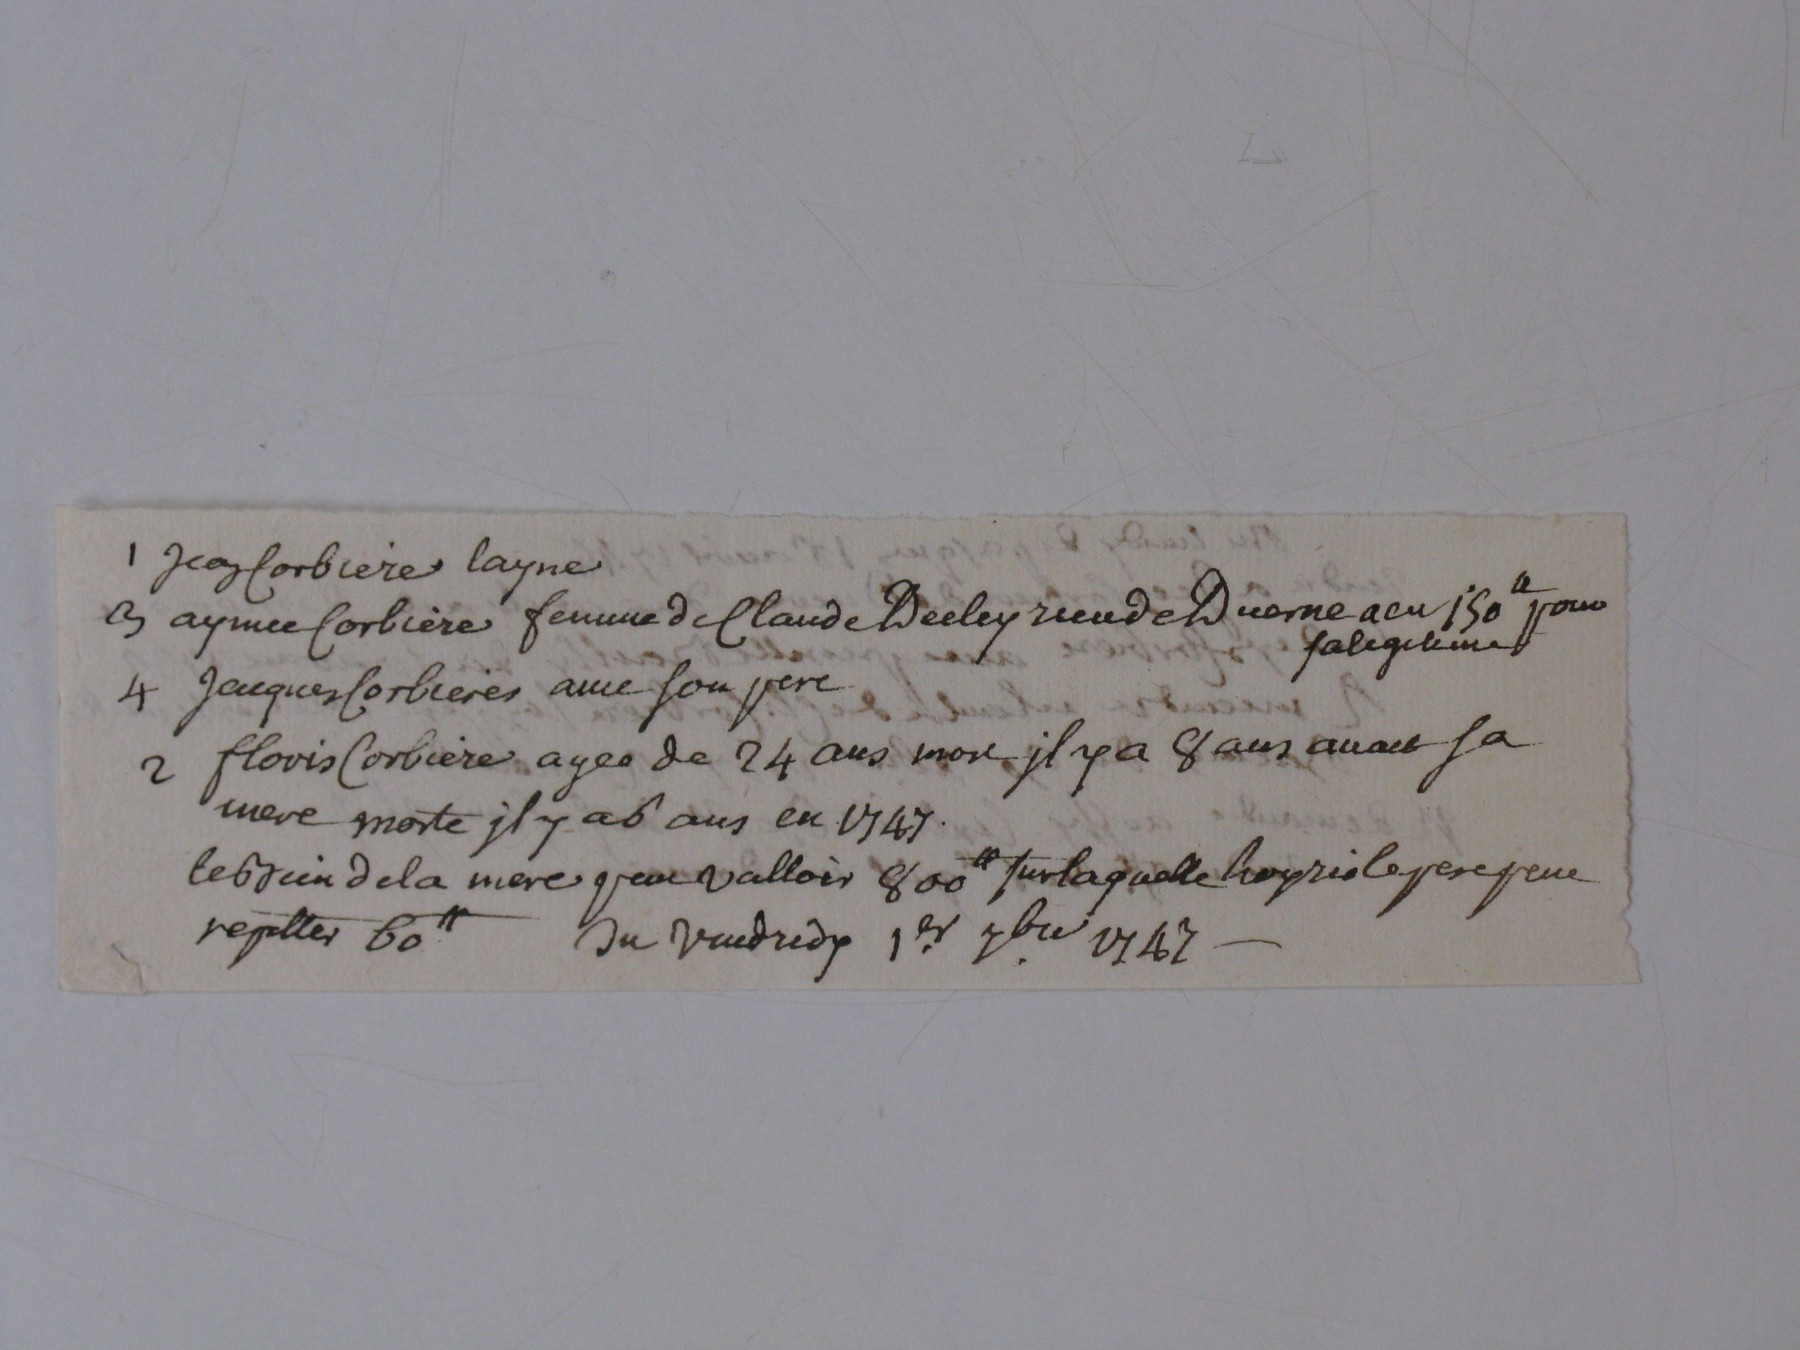 1 Jean Corbiere layne
3 aymee Corbiere femme de Claude Decleyrieu de Duerne a eu 150tt pour
sa legitime
4 Jacques Corbieres avec son pere
2 floris Corbiere agee de 24 ans mort il y a 8 ans avant sa
mere morte jl y a 6 ans en 1747.
le bien de la mere peut valloir 800tt sur laquelle le pere peut
repetter 60tt du vendredy 1er 7bre 1747 —